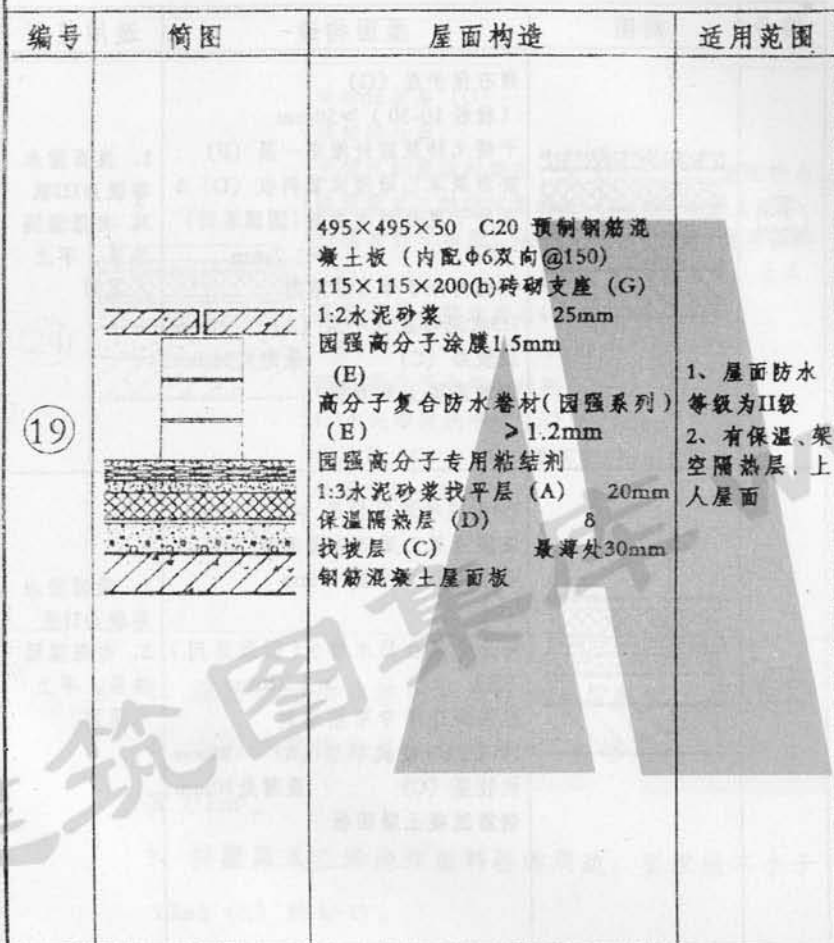 编号 简图 屋面构造 适用范围
⑲
495×495×50 C20 预制钢筋混
凝土板（内配ф6双向@150）
115×115×200(h)砖砌支座（G）
1:2水泥砂浆 25mm
园强高分子涂膜1.5mm
（E）
高分子复合防水卷材(园强系列)
（E） ≥1.2mm
园强高分子专用粘结剂
1:3水泥砂浆找平层（A） 20mm
保温隔热层（D） δ
找坡层（C） 最薄处30mm
钢筋混凝土屋面板
1、屋面防水
等级为II级
2、有保温、架
空隔热层、上
人屋面
筑图集库 w